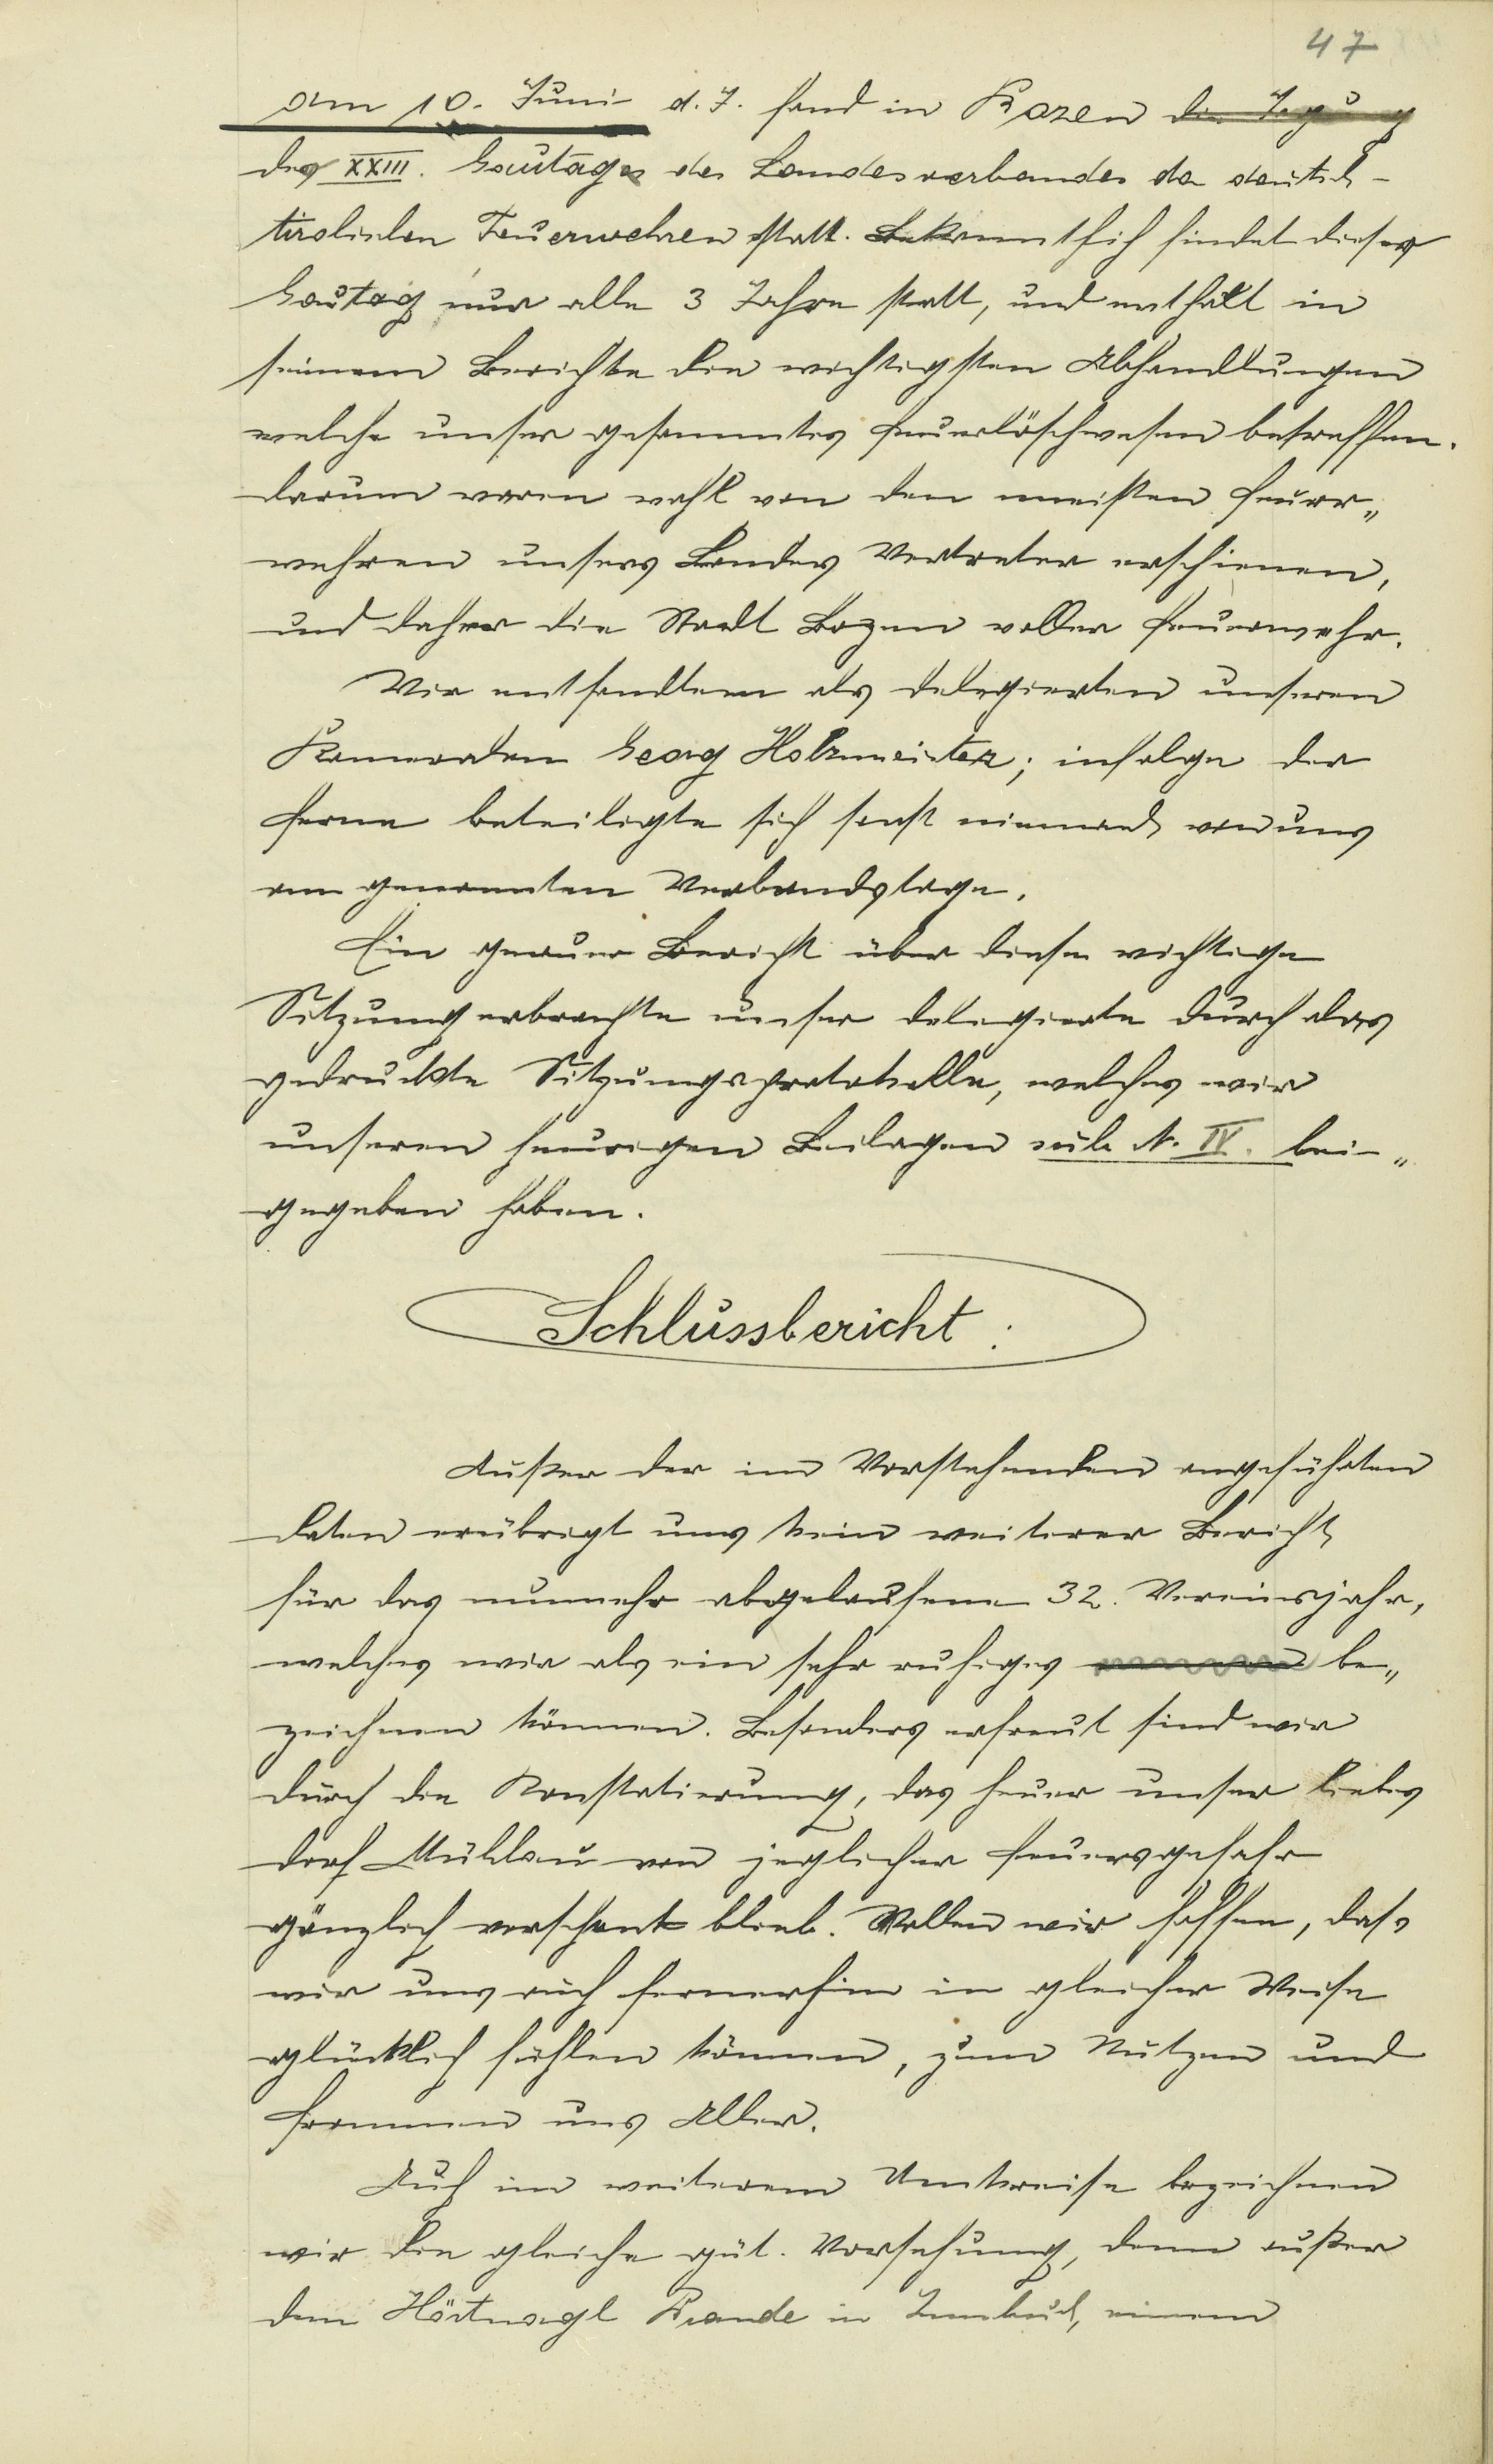 47
Am 10. Juni d. J. fand in Bozen die Tagung
des XXIII. Gautages des Landesverbandes der deutsch-
tirolischen Feuerwehren statt. Bekanntlich findet dieser
Gautag nur alle 3 Jahre statt, und enthält in
seinem Berichte die wichtigsten Abhandlungen
welche unser gesammtes Feuerlöschwesen betreffen.
Darum waren wohl von den meisten Feuer„
wehren unsers Landes Vertreter erschienen,
und daher die Stadt Bozen voller Feuerwehr.
Wir entsandten als Delegierten unseren
Kameraden Georg Holzmeister; infolge der
Ferne beteiligte sich sonst niemand von uns
am genannten Verbandstage.
Ein genauer Bericht über diese wichtige
Sitzung erbrachte unser Delegierte durch das
gedruckte Sitzungsprotokolle, welches wir
unseren heurigen Beilagen sub N. IV. bei-„
gegeben haben.
Schlussbericht:
Außer der im Vorstehenden angeführten
Daten erübrigt uns kein weiterer Bericht
für das nunmehr abgelaufene 32. Vereinsjahr,
welches wir als ein sehr ruhiges be„
zeichnen können. Besonders erfreut sind wir
durch die Konstatierung, das heuer unser liebes
Dorf Mühlau von jeglicher Feuersgefahr
gänzlich verschont blieb. Wollen wir hoffen, dass
wir uns auch fernerhin in gleicher Weise
glücklich fühlen können, zum Nutzen und
Frommen uns Aller.
Auch im weiterem Umkreise bezeichnen
wir die gleiche güt. Vorsehung, denn außer
dem Hörtnagl Brande in Innsbruck, einem